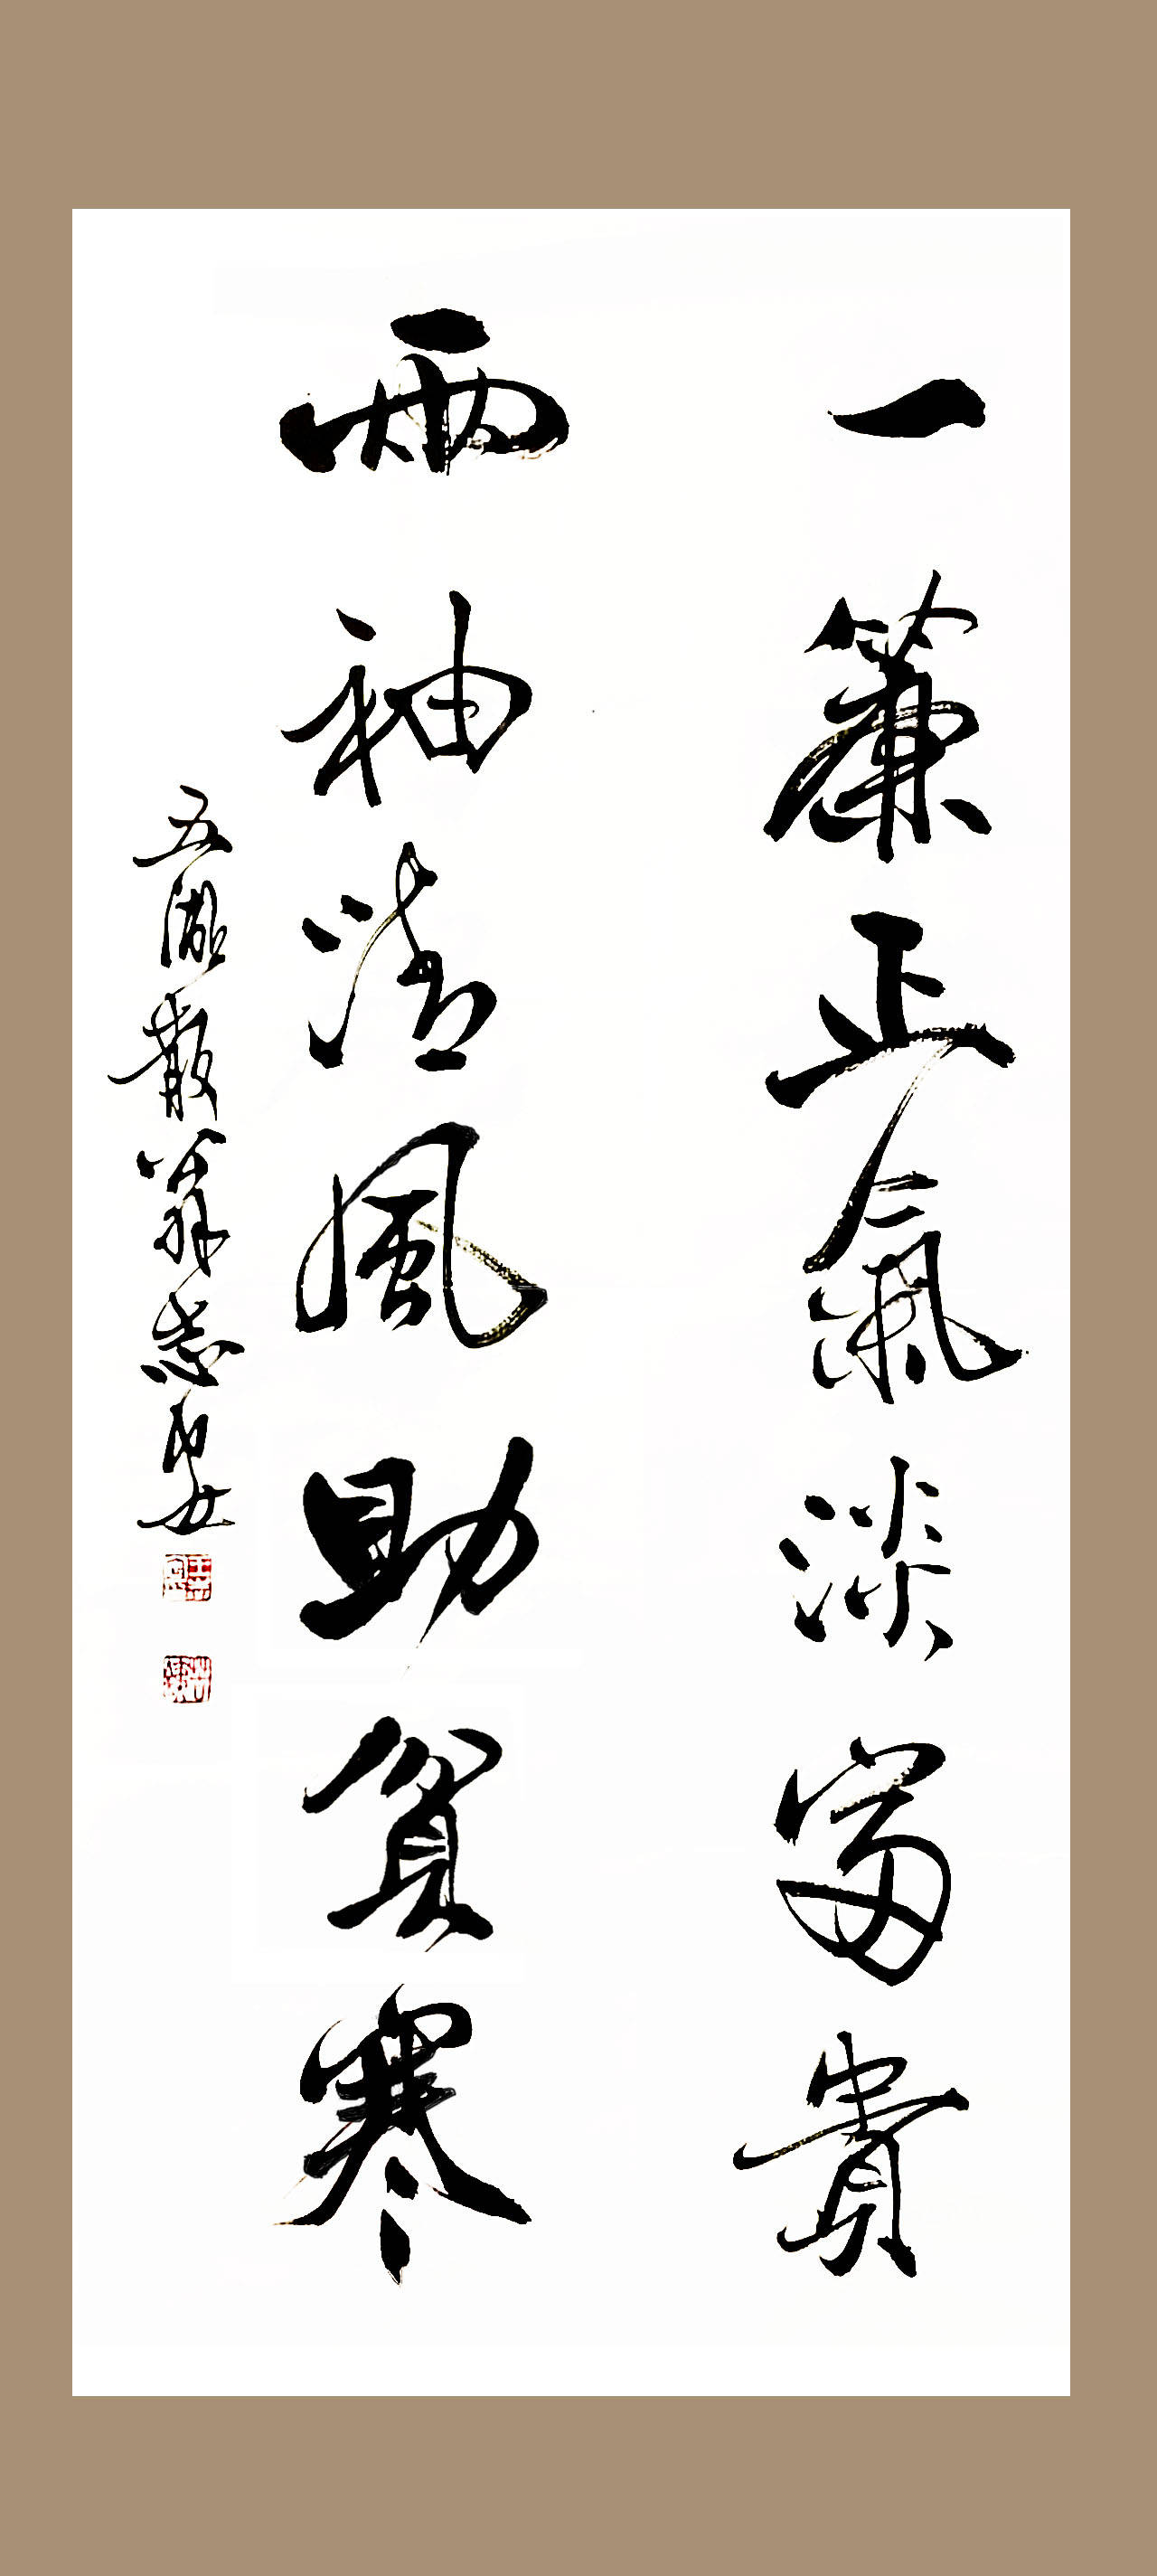 一簾正氣淡富貴
兩袖清風助貧寒
五湖散翁志勇书